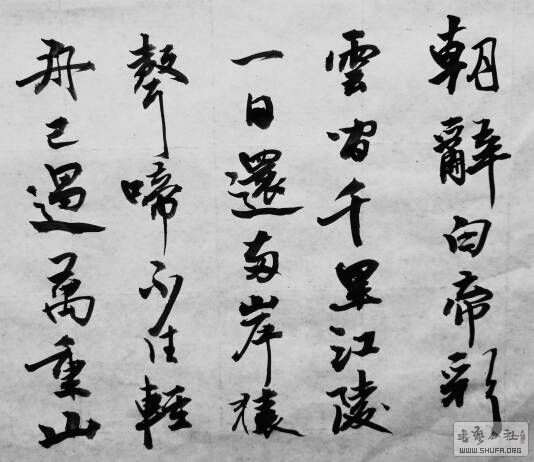 朝辭白帝彩
雲間千里江陵
一日還兩岸猿
聲啼不住輕
舟已過萬重山
书艺公社
WWW.SHUFA.ORG